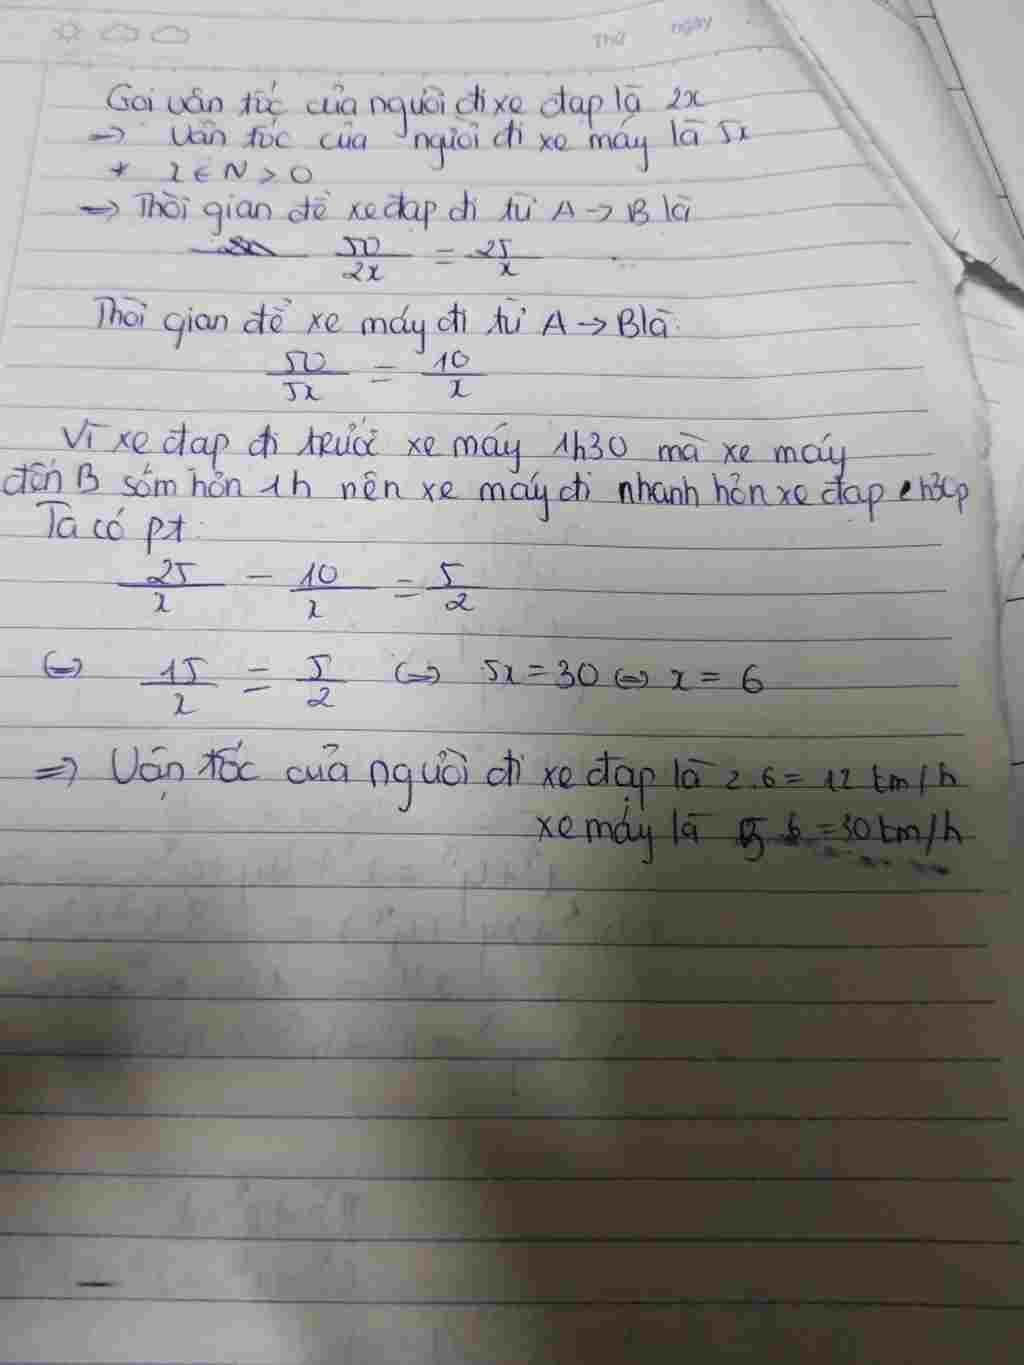 Thứ ngày
Gọi vận tốc của người đi xe đạp là 2x
=> vận tốc của người đi xe máy là 5x
* x ∈ N > 0
=> Thời gian để xe đạp đi từ A → B là
50/2x = 25/x
Thời gian để xe máy đi từ A → B là:
50/5x = 10/x
Vì xe đạp đi trước xe máy 1h30 mà xe máy
đến B sớm hơn 1h nên xe máy đi nhanh hơn xe đạp 2h30p
Ta có pt:
25/x - 10/x = 5/2
<=> 15/x = 5/2 <=> 5x = 30 <=> x = 6
=> Vận tốc của người đi xe đạp là 2.6 = 12 km/h
xe máy là 5.6 = 30 km/h